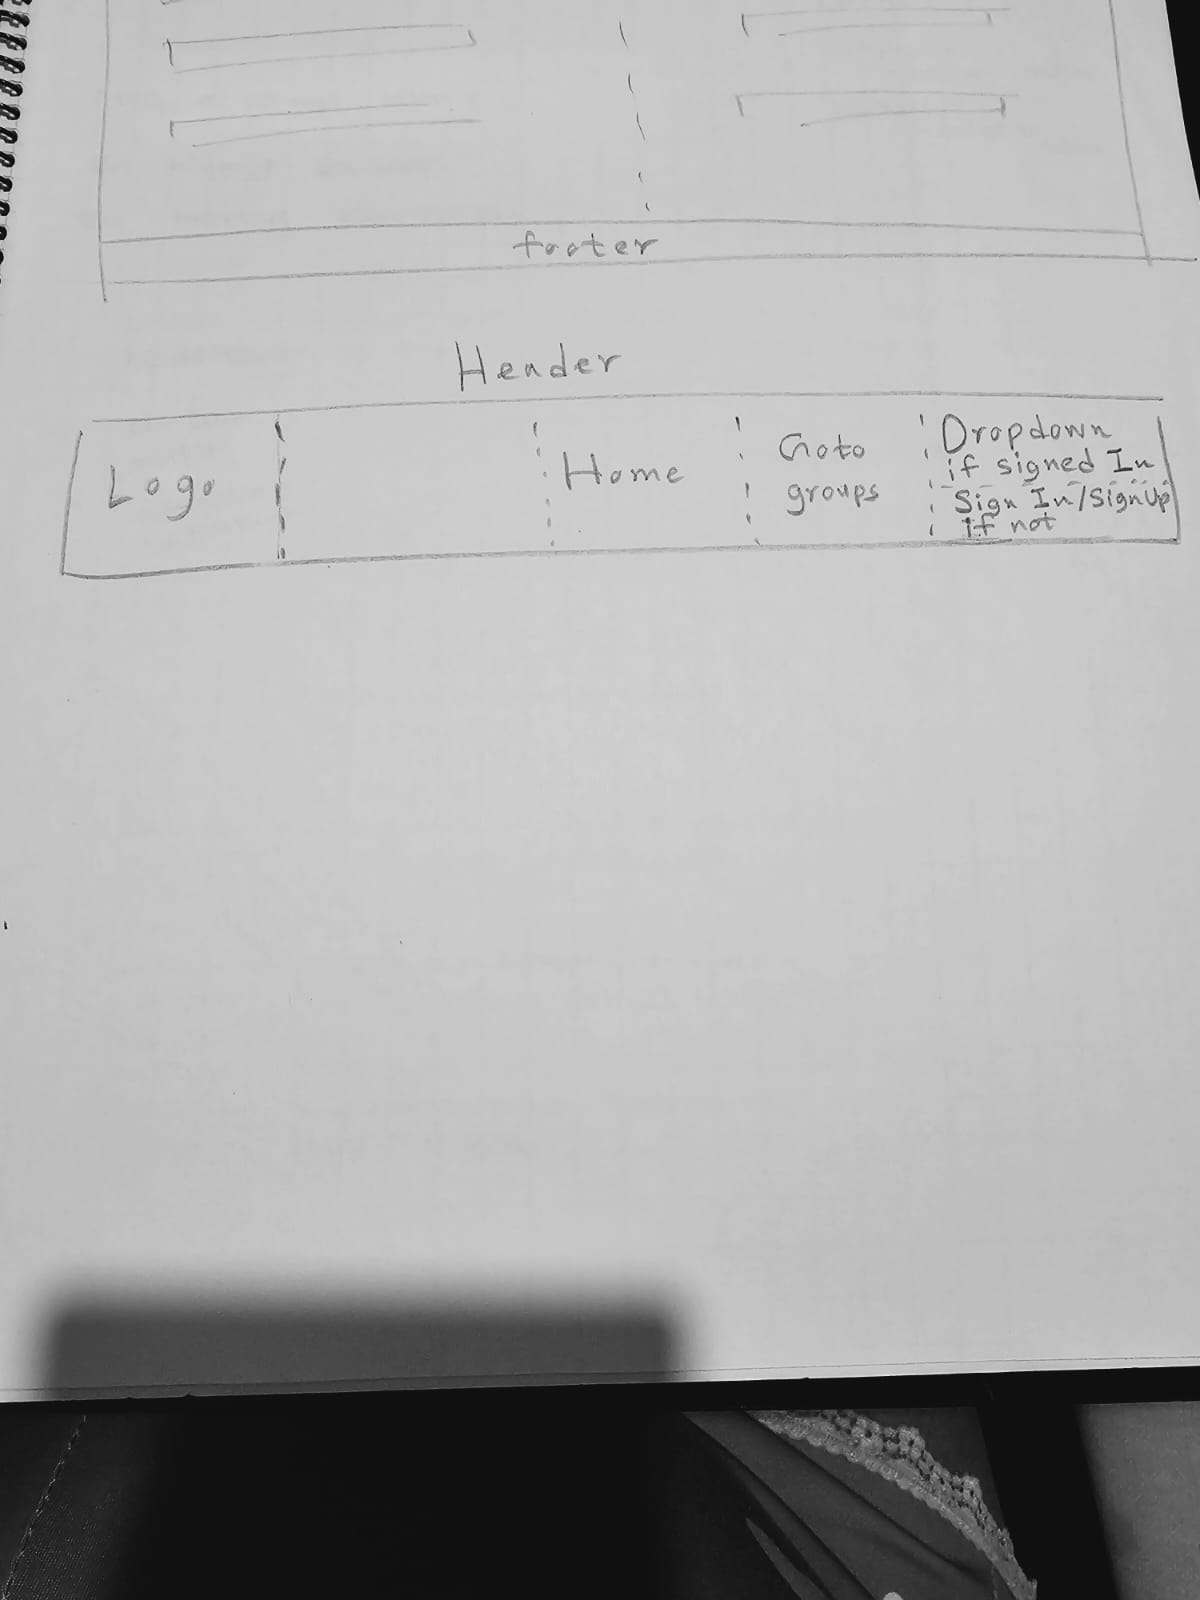 footer
Header
Logo
Home
Goto
groups
Dropdown
if signed In
Sign In/SignUp
if not